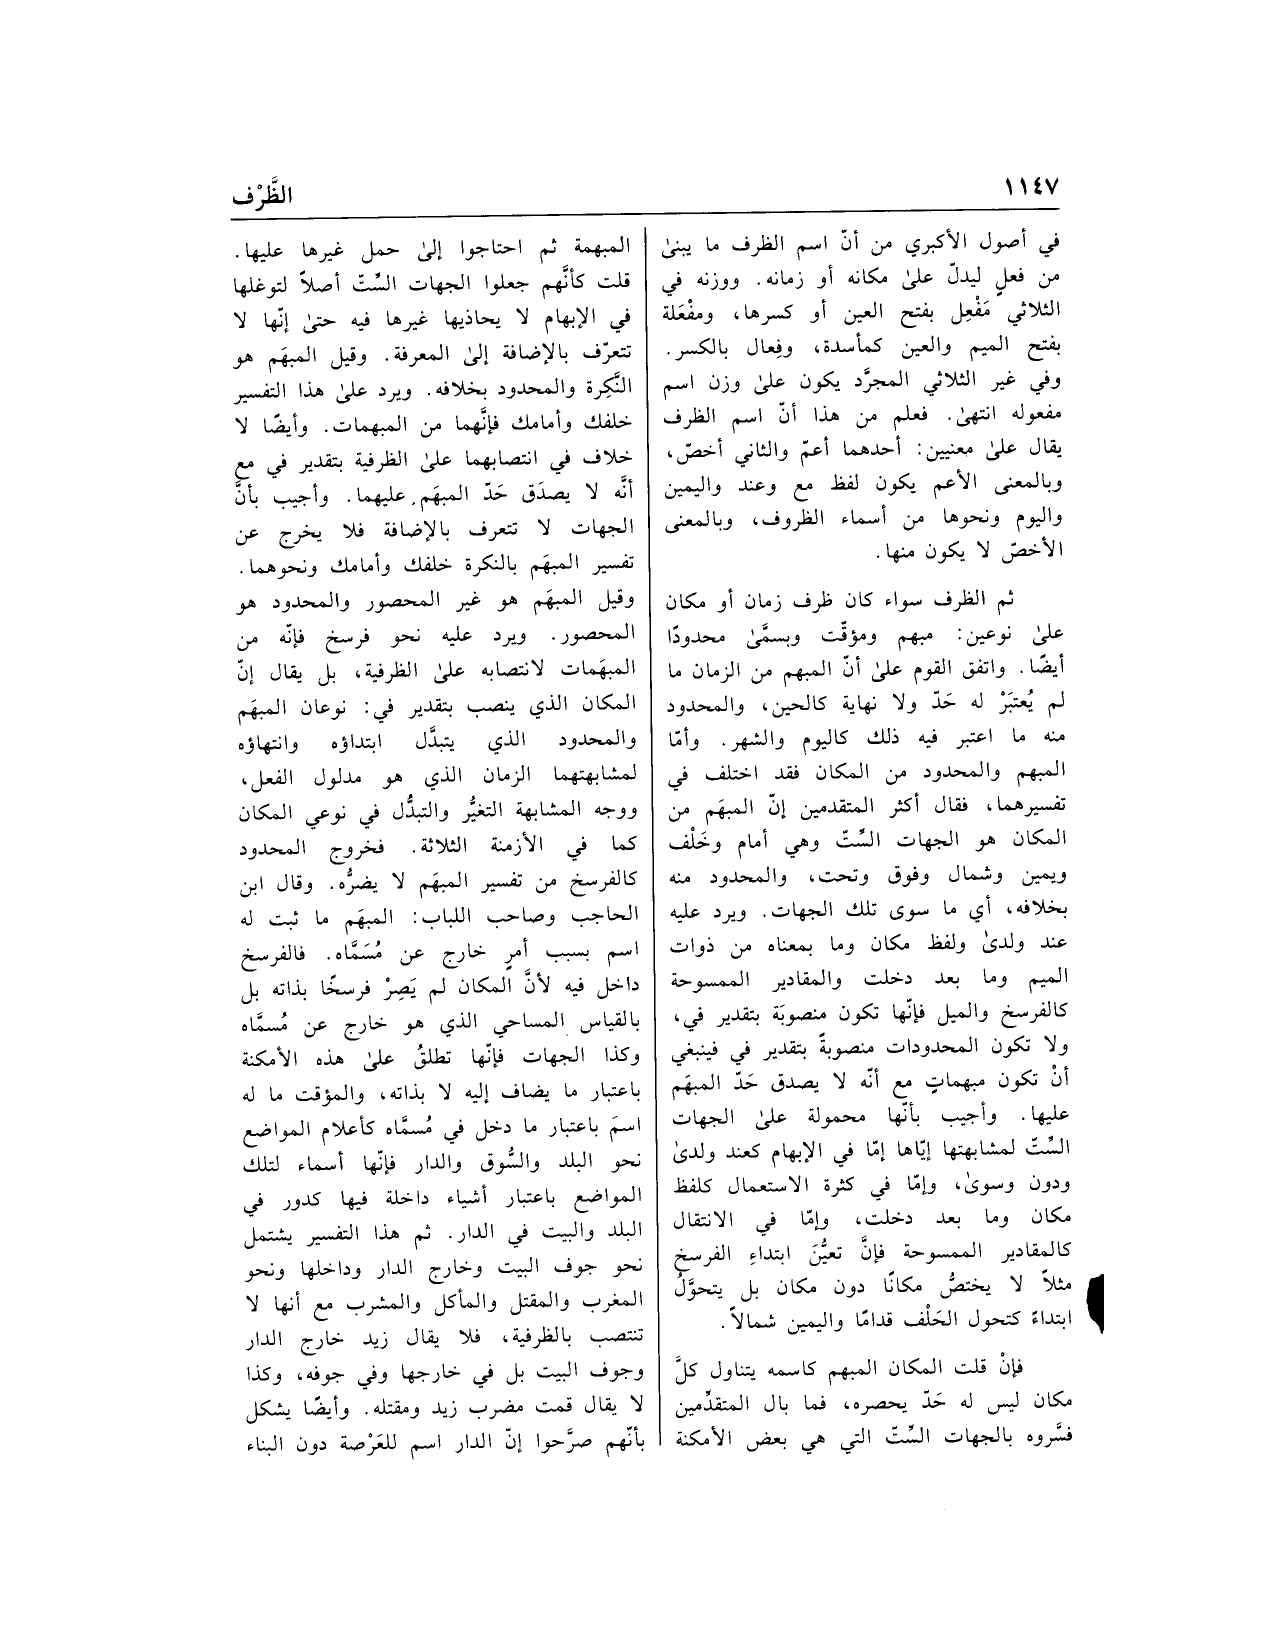 ١١٤٧
الظَّرْف
في أصول الأكبري من أنّ اسم الظرف ما يبنىٰ
من فعلٍ ليدلّ علىٰ مكانه أو زمانه. ووزنه في
الثلاثي مَفْعِل بفتح العين أو كسرها، ومفْعَلة
بفتح الميم والعين كمأسدة، وفِعال بالكسر.
وفي غير الثلاثي المجرَّد يكون علىٰ وزن اسم
مفعوله انتهىٰ. فعلم من هذا أنّ اسم الظرف
يقال علىٰ معنيين: أحدهما أعمّ والثاني أخصّ،
وبالمعنى الأعم يكون لفظ مع وعند واليمين
واليوم ونحوها من أسماء الظروف، وبالمعنى
الأخصّ لا يكون منها.
ثم الظرف سواء كان ظرف زمان أو مكان
علىٰ نوعين: مبهم ومؤقّت ويسمَّىٰ محدودًا
أيضًا. واتفق القوم علىٰ أنّ المبهم من الزمان ما
لم يُعتبَرْ له حَدّ ولا نهاية كالحين، والمحدود
منه ما اعتبر فيه ذلك كاليوم والشهر. وأمّا
المبهم والمحدود من المكان فقد اختلف في
تفسيرهما، فقال أكثر المتقدمين إنّ المبهَم من
المكان هو الجهات السِّتّ وهي أمام وخَلْف
ويمين وشمال وفوق وتحت، والمحدود منه
بخلافه، أي ما سوى تلك الجهات. ويرد عليه
عند ولدىٰ ولفظ مكان وما بمعناه من ذوات
الميم وما بعد دخلت والمقادير الممسوحة
كالفرسخ والميل فإنّها تكون منصوبَة بتقدير في،
ولا تكون المحدودات منصوبةً بتقدير في فينبغي
أنْ تكون مبهماتٍ مع أنّه لا يصدق حَدّ المبهَم
عليها. وأجيب بأنّها محمولة علىٰ الجهات
السِّتّ لمشابهتها إيّاها إمّا في الإبهام كعند ولدىٰ
ودون وسوىٰ، وإمّا في كثرة الاستعمال كلفظ
مكان وما بعد دخلت، وإمّا في الانتقال
كالمقادير الممسوحة فإنَّ تعيُّنَ ابتداءِ الفرسخ
مثلاً لا يختصُّ مكانًا دون مكان بل يتحوَّلُ
ابتداءً كتحول الخَلْف قدامًا واليمين شمالاً.
فإنْ قلت المكان المبهم كاسمه يتناول كلَّ
مكان ليس له حَدّ يحصره، فما بال المتقدِّمين
فسَّروه بالجهات السِّتّ التي هي بعض الأمكنة
المبهمة ثم احتاجوا إلىٰ حمل غيرها عليها.
قلت كأنَّهم جعلوا الجهات السِّتّ أصلاً لتوغلها
في الإبهام لا يحاذيها غيرها فيه حتىٰ إنّها لا
تتعرّف بالإضافة إلىٰ المعرفة. وقيل المبهَم هو
النَّكِرة والمحدود بخلافه. ويرد علىٰ هذا التفسير
خلفك وأمامك فإنَّهما من المبهمات. وأيضًا لا
خلاف في انتصابهما علىٰ الظرفية بتقدير في مع
أنَّه لا يصدَق حَدّ المبهَم عليهما. وأجيب بأنَّ
الجهات لا تتعرف بالإضافة فلا يخرج عن
تفسير المبهَم بالنكرة خلفك وأمامك ونحوهما.
وقيل المبهَم هو غير المحصور والمحدود هو
المحصور. ويرد عليه نحو فرسخ فإنّه من
المبهَمات لانتصابه علىٰ الظرفية، بل يقال إنّ
المكان الذي ينصب بتقدير في: نوعان المبهَم
والمحدود الذي يتبدَّل ابتداؤه وانتهاؤه
لمشابهتهما الزمان الذي هو مدلول الفعل،
ووجه المشابهة التغيُّر والتبدُّل في نوعي المكان
كما في الأزمنة الثلاثة. فخروج المحدود
كالفرسخ من تفسير المبهَم لا يضرُّه. وقال ابن
الحاجب وصاحب اللباب: المبهَم ما ثبت له
اسم بسبب أمرٍ خارج عن مُسَمَّاه. فالفرسخ
داخل فيه لأنَّ المكان لم يَصِرْ فرسخًا بذاته بل
بالقياس المساحي الذي هو خارج عن مُسمَّاه
وكذا الجهات فإنّها تطلقُ علىٰ هذه الأمكنة
باعتبار ما يضاف إليه لا بذاته، والمؤقت ما له
اسمَ باعتبار ما دخل في مُسمَّاه كأعلام المواضع
نحو البلد والسُّوق والدار فإنّها أسماء لتلك
المواضع باعتبار أشياء داخلة فيها كدور في
البلد والبيت في الدار. ثم هذا التفسير يشتمل
نحو جوف البيت وخارج الدار وداخلها ونحو
المغرب والمقتل والمأكل والمشرب مع أنها لا
تنتصب بالظرفية، فلا يقال زيد خارج الدار
وجوف البيت بل في خارجها وفي جوفه، وكذا
لا يقال قمت مضرب زيد ومقتله. وأيضًا يشكل
بأنّهم صرَّحوا إنّ الدار اسم للعَرْصة دون البناء